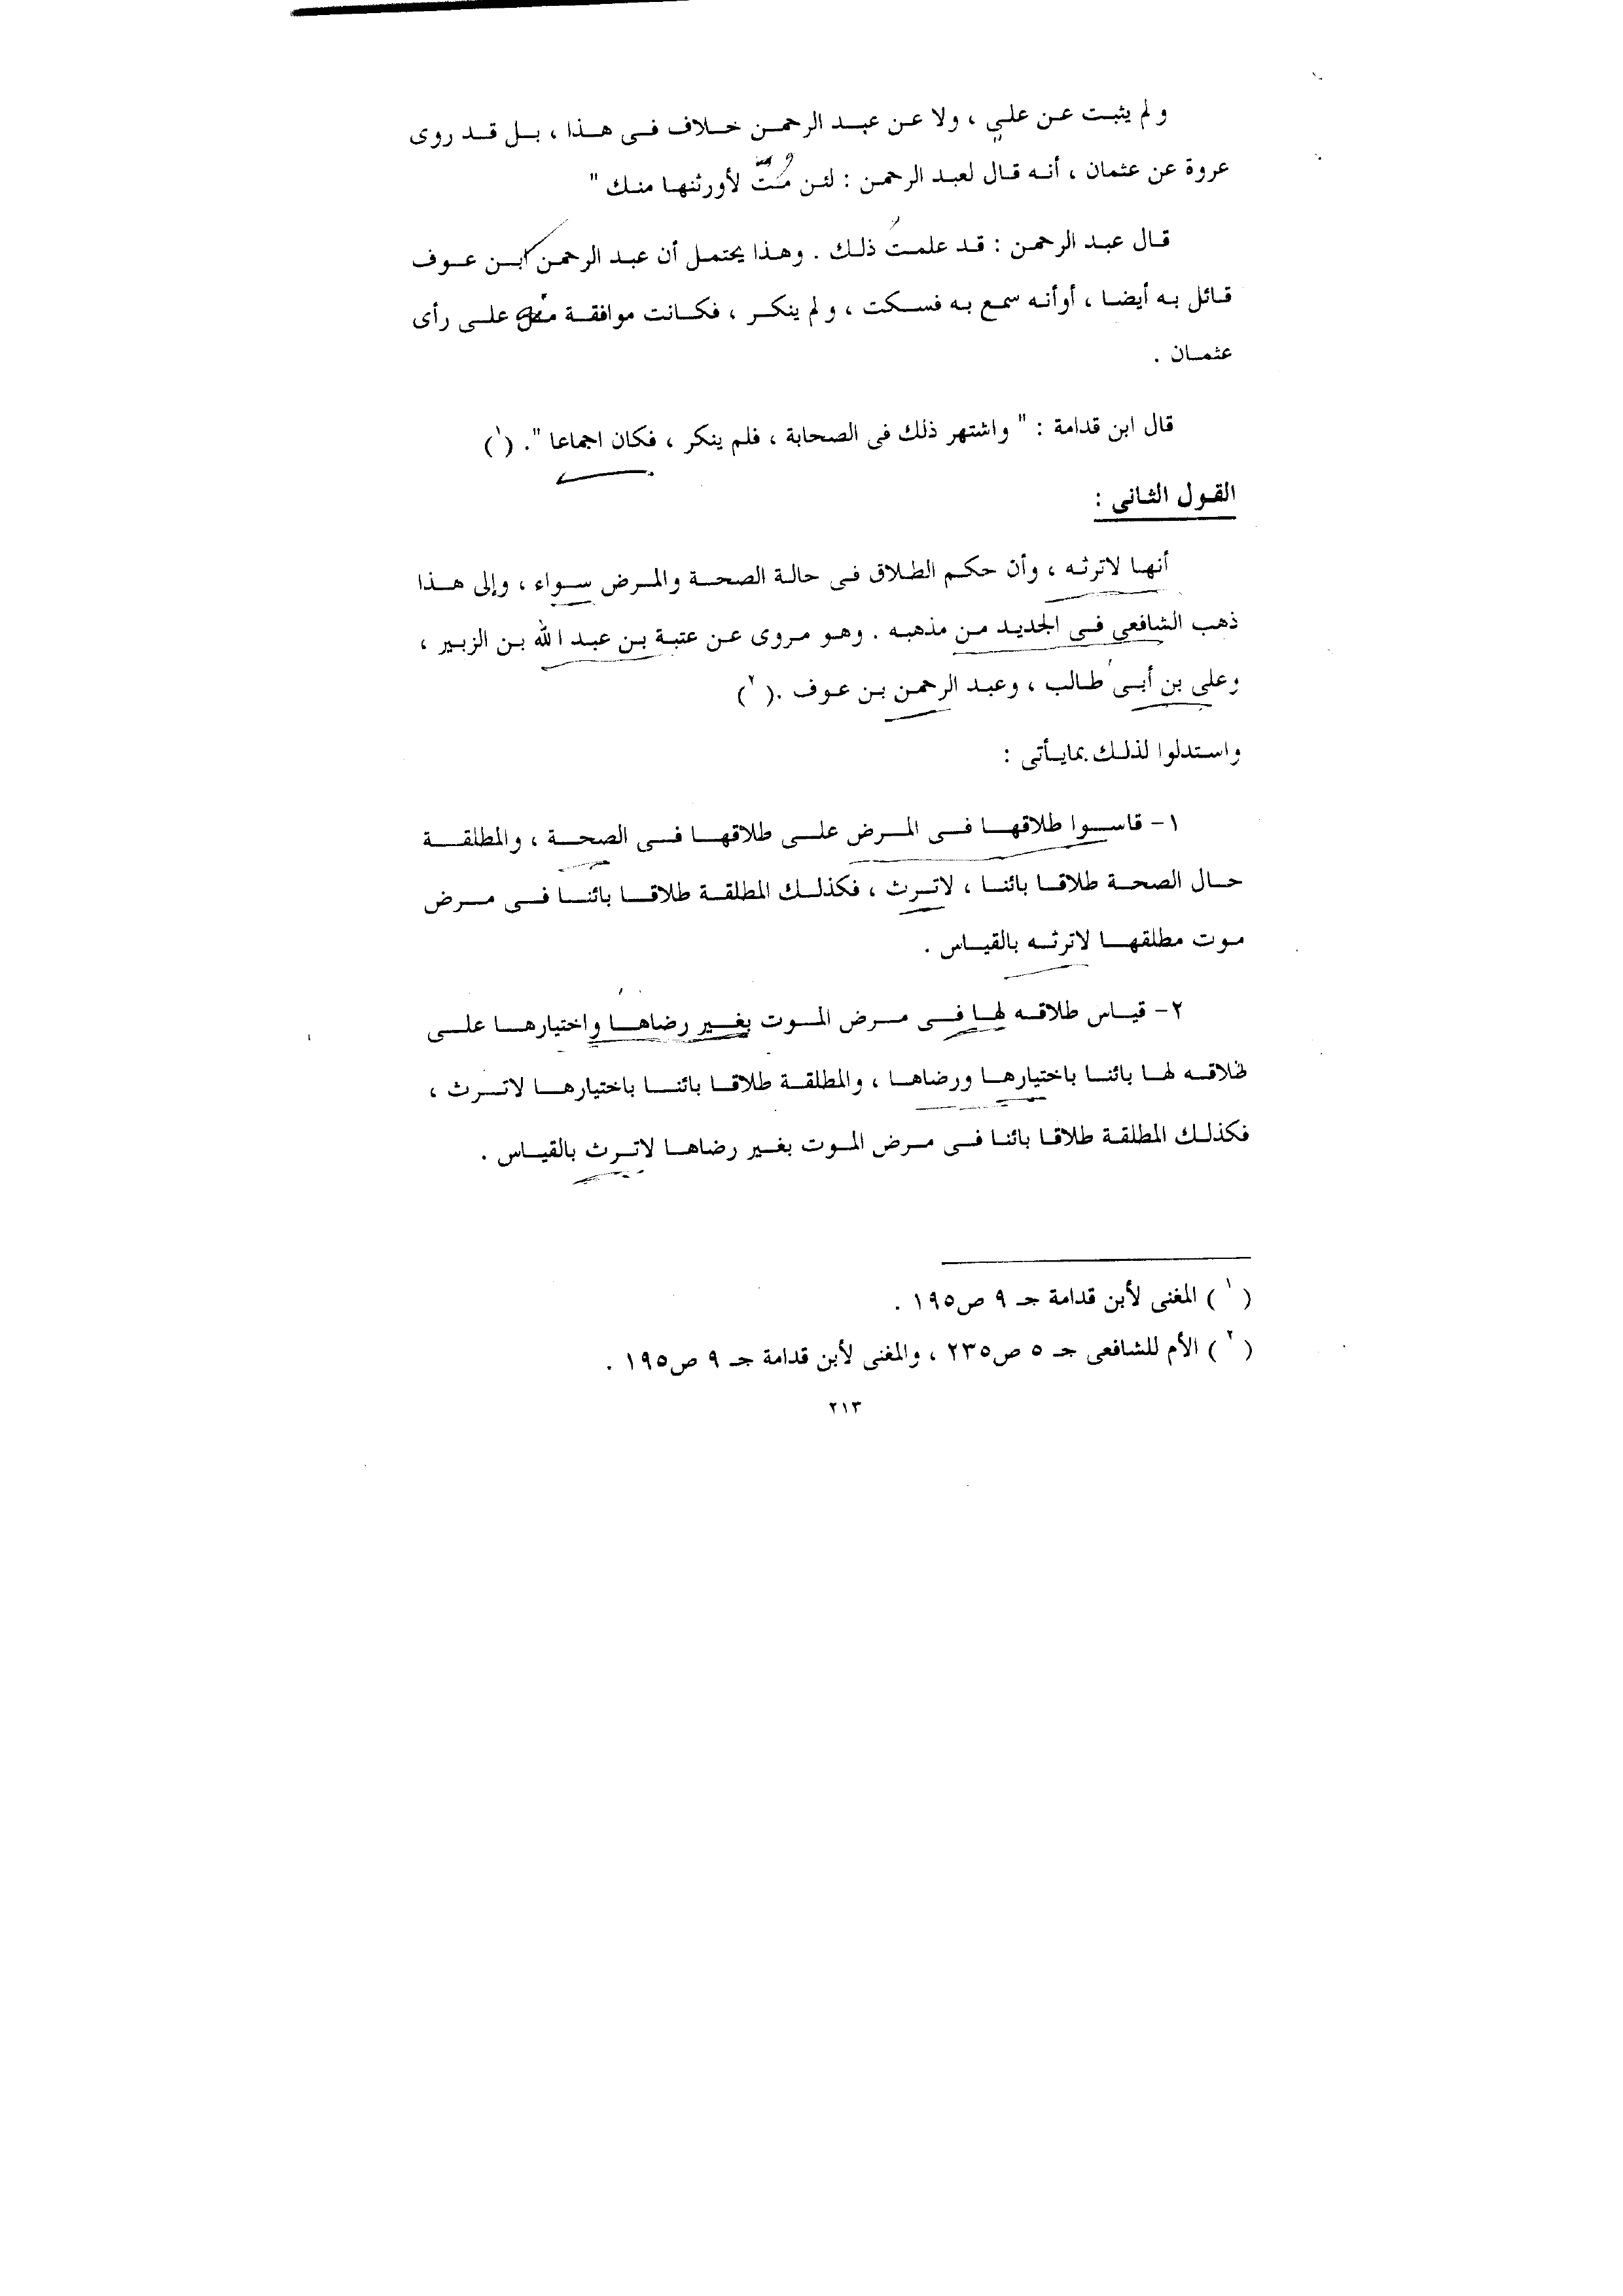 ولم يثبت عن علي ، ولا عن عبد الرحمن خلاف فى هذا ، بل قد روى
عروة عن عثمان ، أنه قال لعبد الرحمن : لئن مُتّ لأورثنها منك "
قال عبد الرحمن : قد علمتُ ذلك . وهذا يحتمل أن عبد الرحمن ابن عوف
قائل به أيضا ، أوأنه سمع به فسكت ، ولم ينكر ، فكانت موافقة على رأى
عثمان .
قال ابن قدامة : " واشتهر ذلك فى الصحابة ، فلم ينكر ، فكان اجماعا ". (١)
القول الثانى :
أنها لاترثه ، وأن حكم الطلاق فى حالة الصحة والمرض سواء ، وإلى هذا
ذهب الشافعى فى الجديد من مذهبه . وهو مروى عن عتبة بن عبد الله بن الزبير ،
وعلى بن أبى طالب ، وعبد الرحمن بن عوف .(٢)
واستدلوا لذلك بمايأتى :
١- قاسوا طلاقها فى المرض على طلاقها فى الصحة ، والمطلقة
حال الصحة طلاقا بائنا ، لاترث ، فكذلك المطلقة طلاقا بائنا فى مرض
موت مطلقها لاترثه بالقياس .
٢- قياس طلاقه لها فى مرض الموت بغير رضاها واختيارها على
طلاقه لها بائنا باختيارها ورضاها ، والمطلقة طلاقا بائنا باختيارها لاترث ،
فكذلك المطلقة طلاقا بائنا فى مرض الموت بغير رضاها لاترث بالقياس .
(١) المغنى لأبن قدامة جـ ٩ ص١٩٥ .
(٢) الأم للشافعى جـ ٥ ص٢٣٥ ، والمغنى لأبن قدامة جـ ٩ ص١٩٥ .
٢١٣